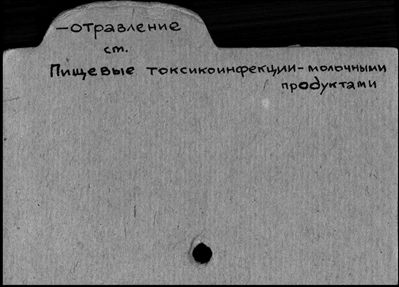 -отравление
ст.
Пищевые токсикоинфекции-молочными
продуктами